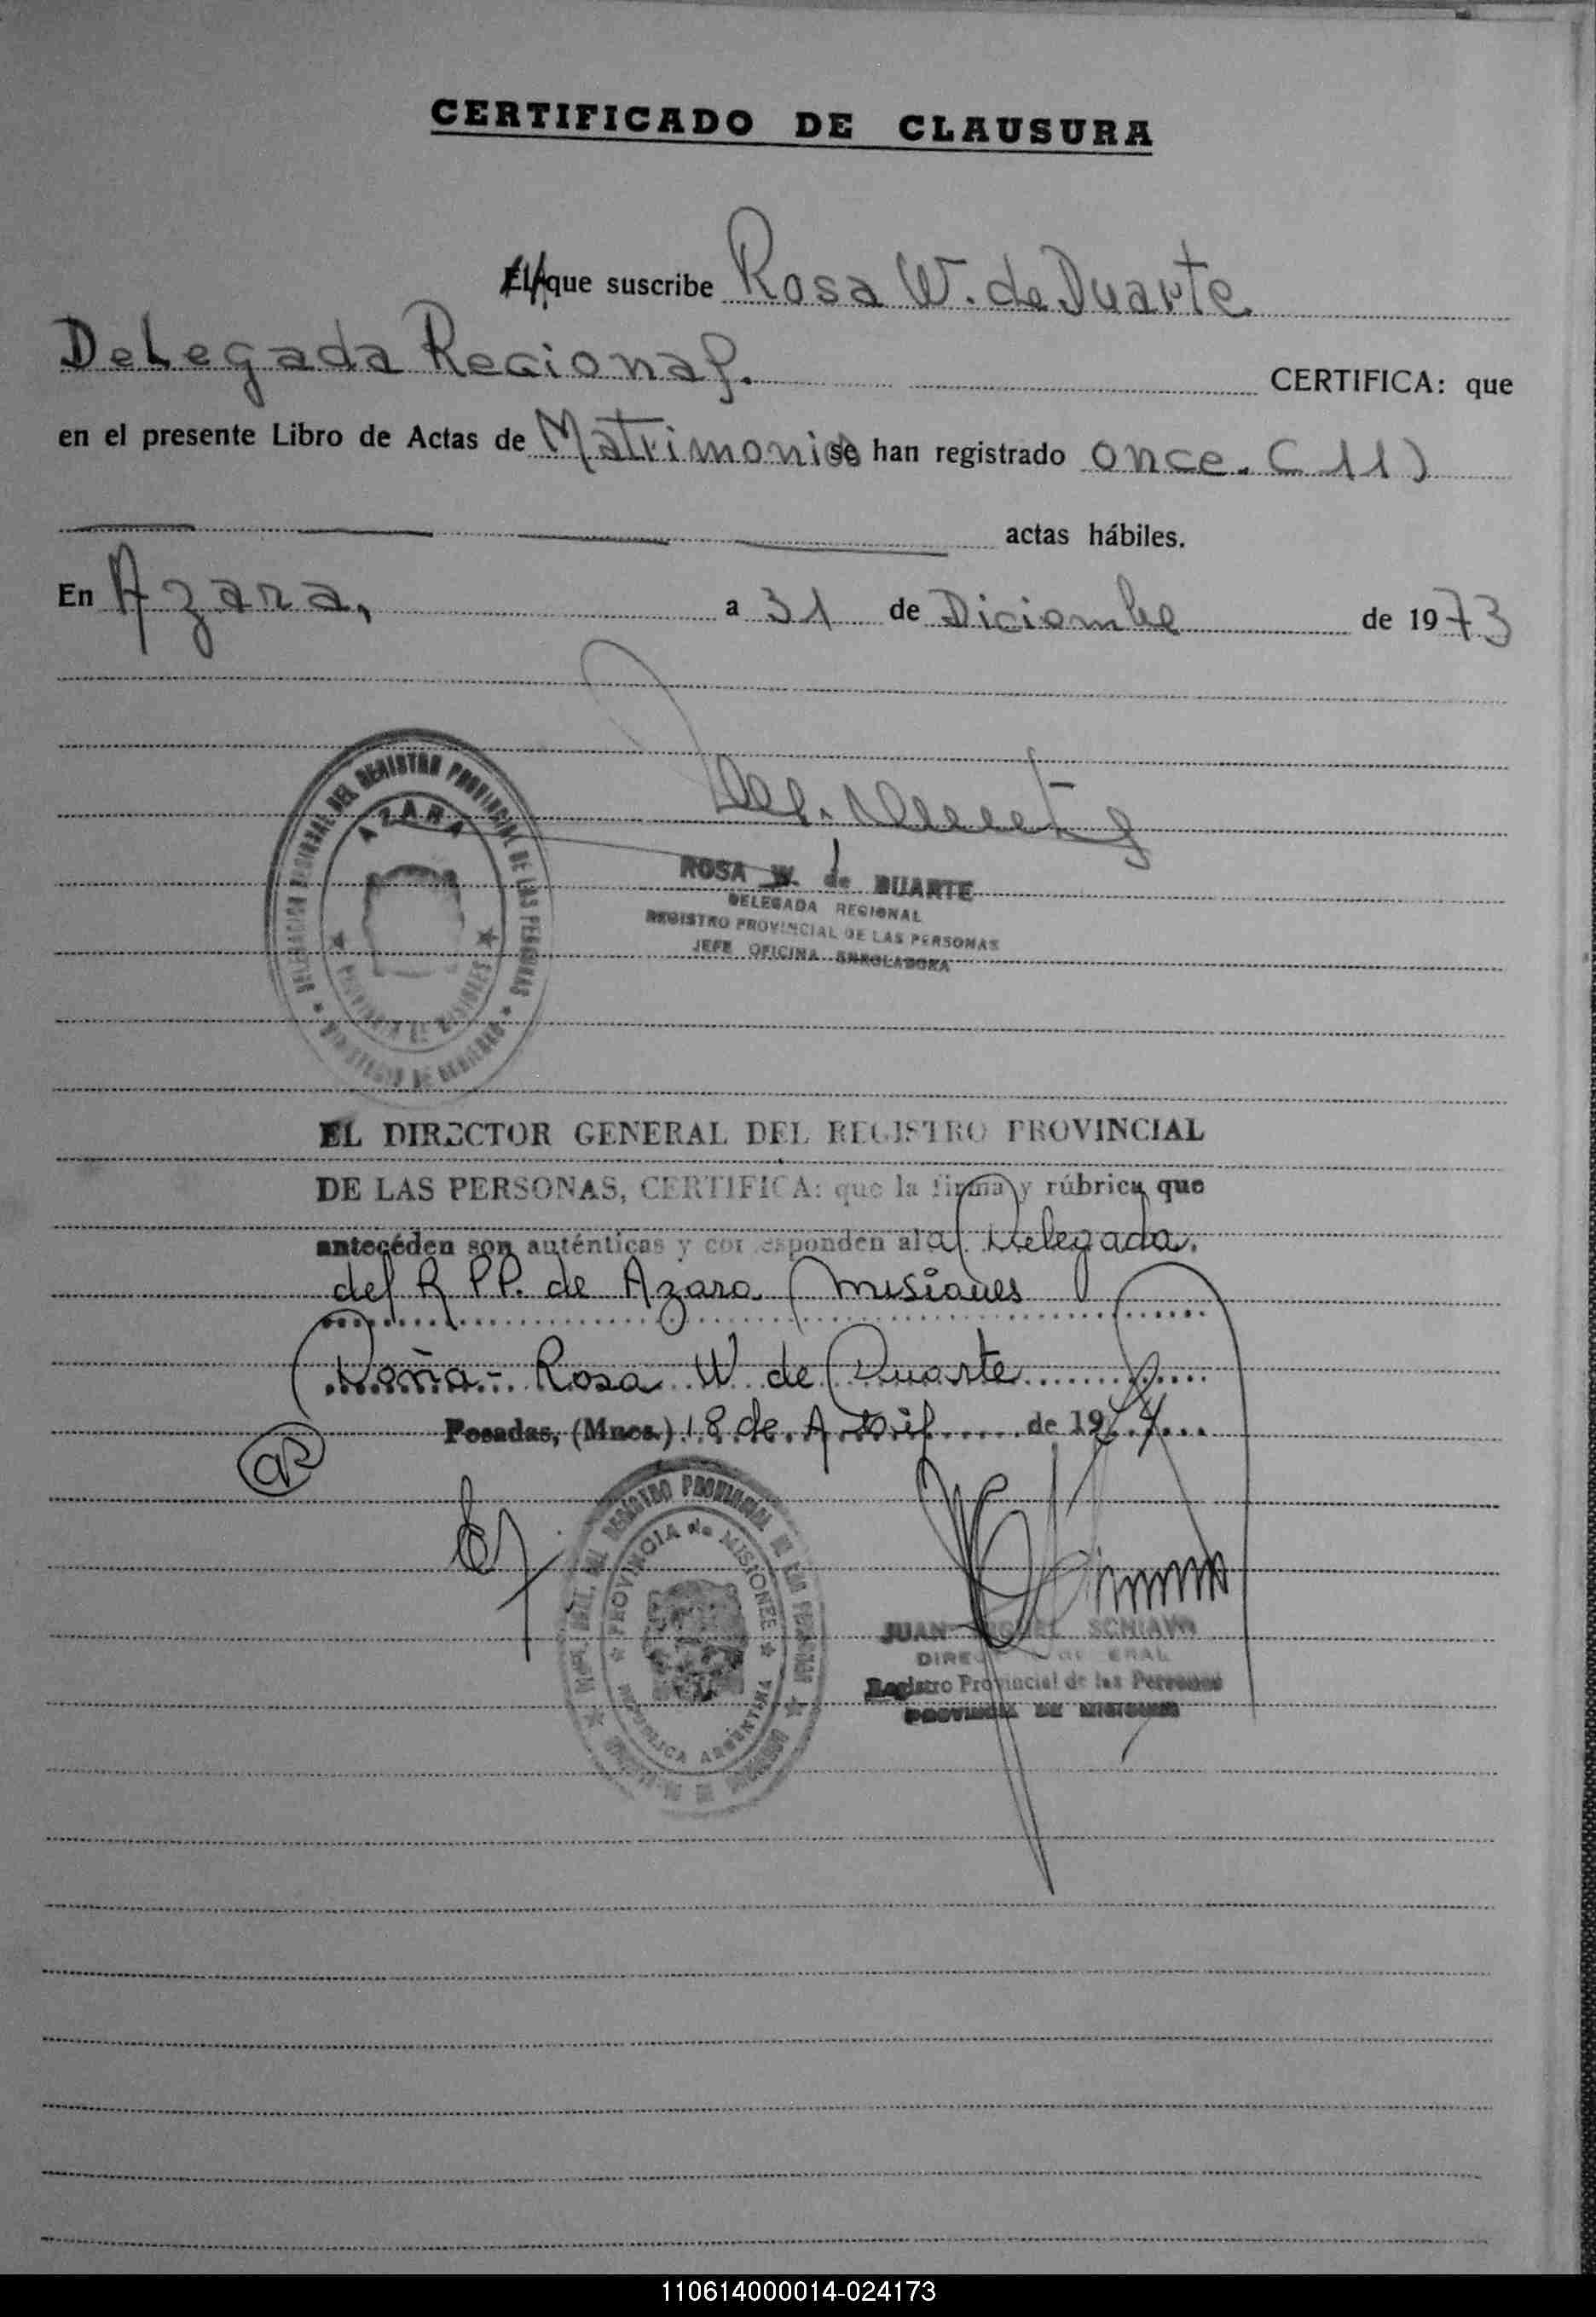 CERTIFICADO DE CLAUSURA
El/A que suscribe Rosa W. de Duarte
Delegada Regional. CERTIFICA: que
en el presente Libro de Actas de Matrimonios se han registrado once. (11)
actas hábiles.
En Azara, a 31 de Diciembre de 1973
DELEGACION REGIONAL DEL REGISTRO PROVINCIAL DE LAS PERSONAS
AZARA
PROVINCIA DE MISIONES
MINISTERIO DE GOBIERNO
ROSA W. de DUARTE
DELEGADA REGIONAL
REGISTRO PROVINCIAL DE LAS PERSONAS
JEFE OFICINA ENROLADORA
EL DIRECTOR GENERAL DEL REGISTRO PROVINCIAL
DE LAS PERSONAS, CERTIFICA: que la firma y rúbrica que
antecéden son auténticas y corresponden al a/ Delegada.
del R. P.P. de Azara (Misiones
Doña - Rosa W de Duarte
Posadas, (Mnes.) 18 de Abril de 1974
REGISTRO PROVINCIAL DE LAS PERSONAS
PROVINCIA de MISIONES
REPUBLICA ARGENTINA
JUAN MIGUEL SCHIAVO
DIRECTOR GENERAL
Registro Provincial de las Personas
PROVINCIA DE MISIONES
110614000014-024173